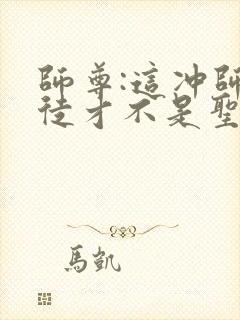 師尊:這冲師
徒才不是聖
馬凱